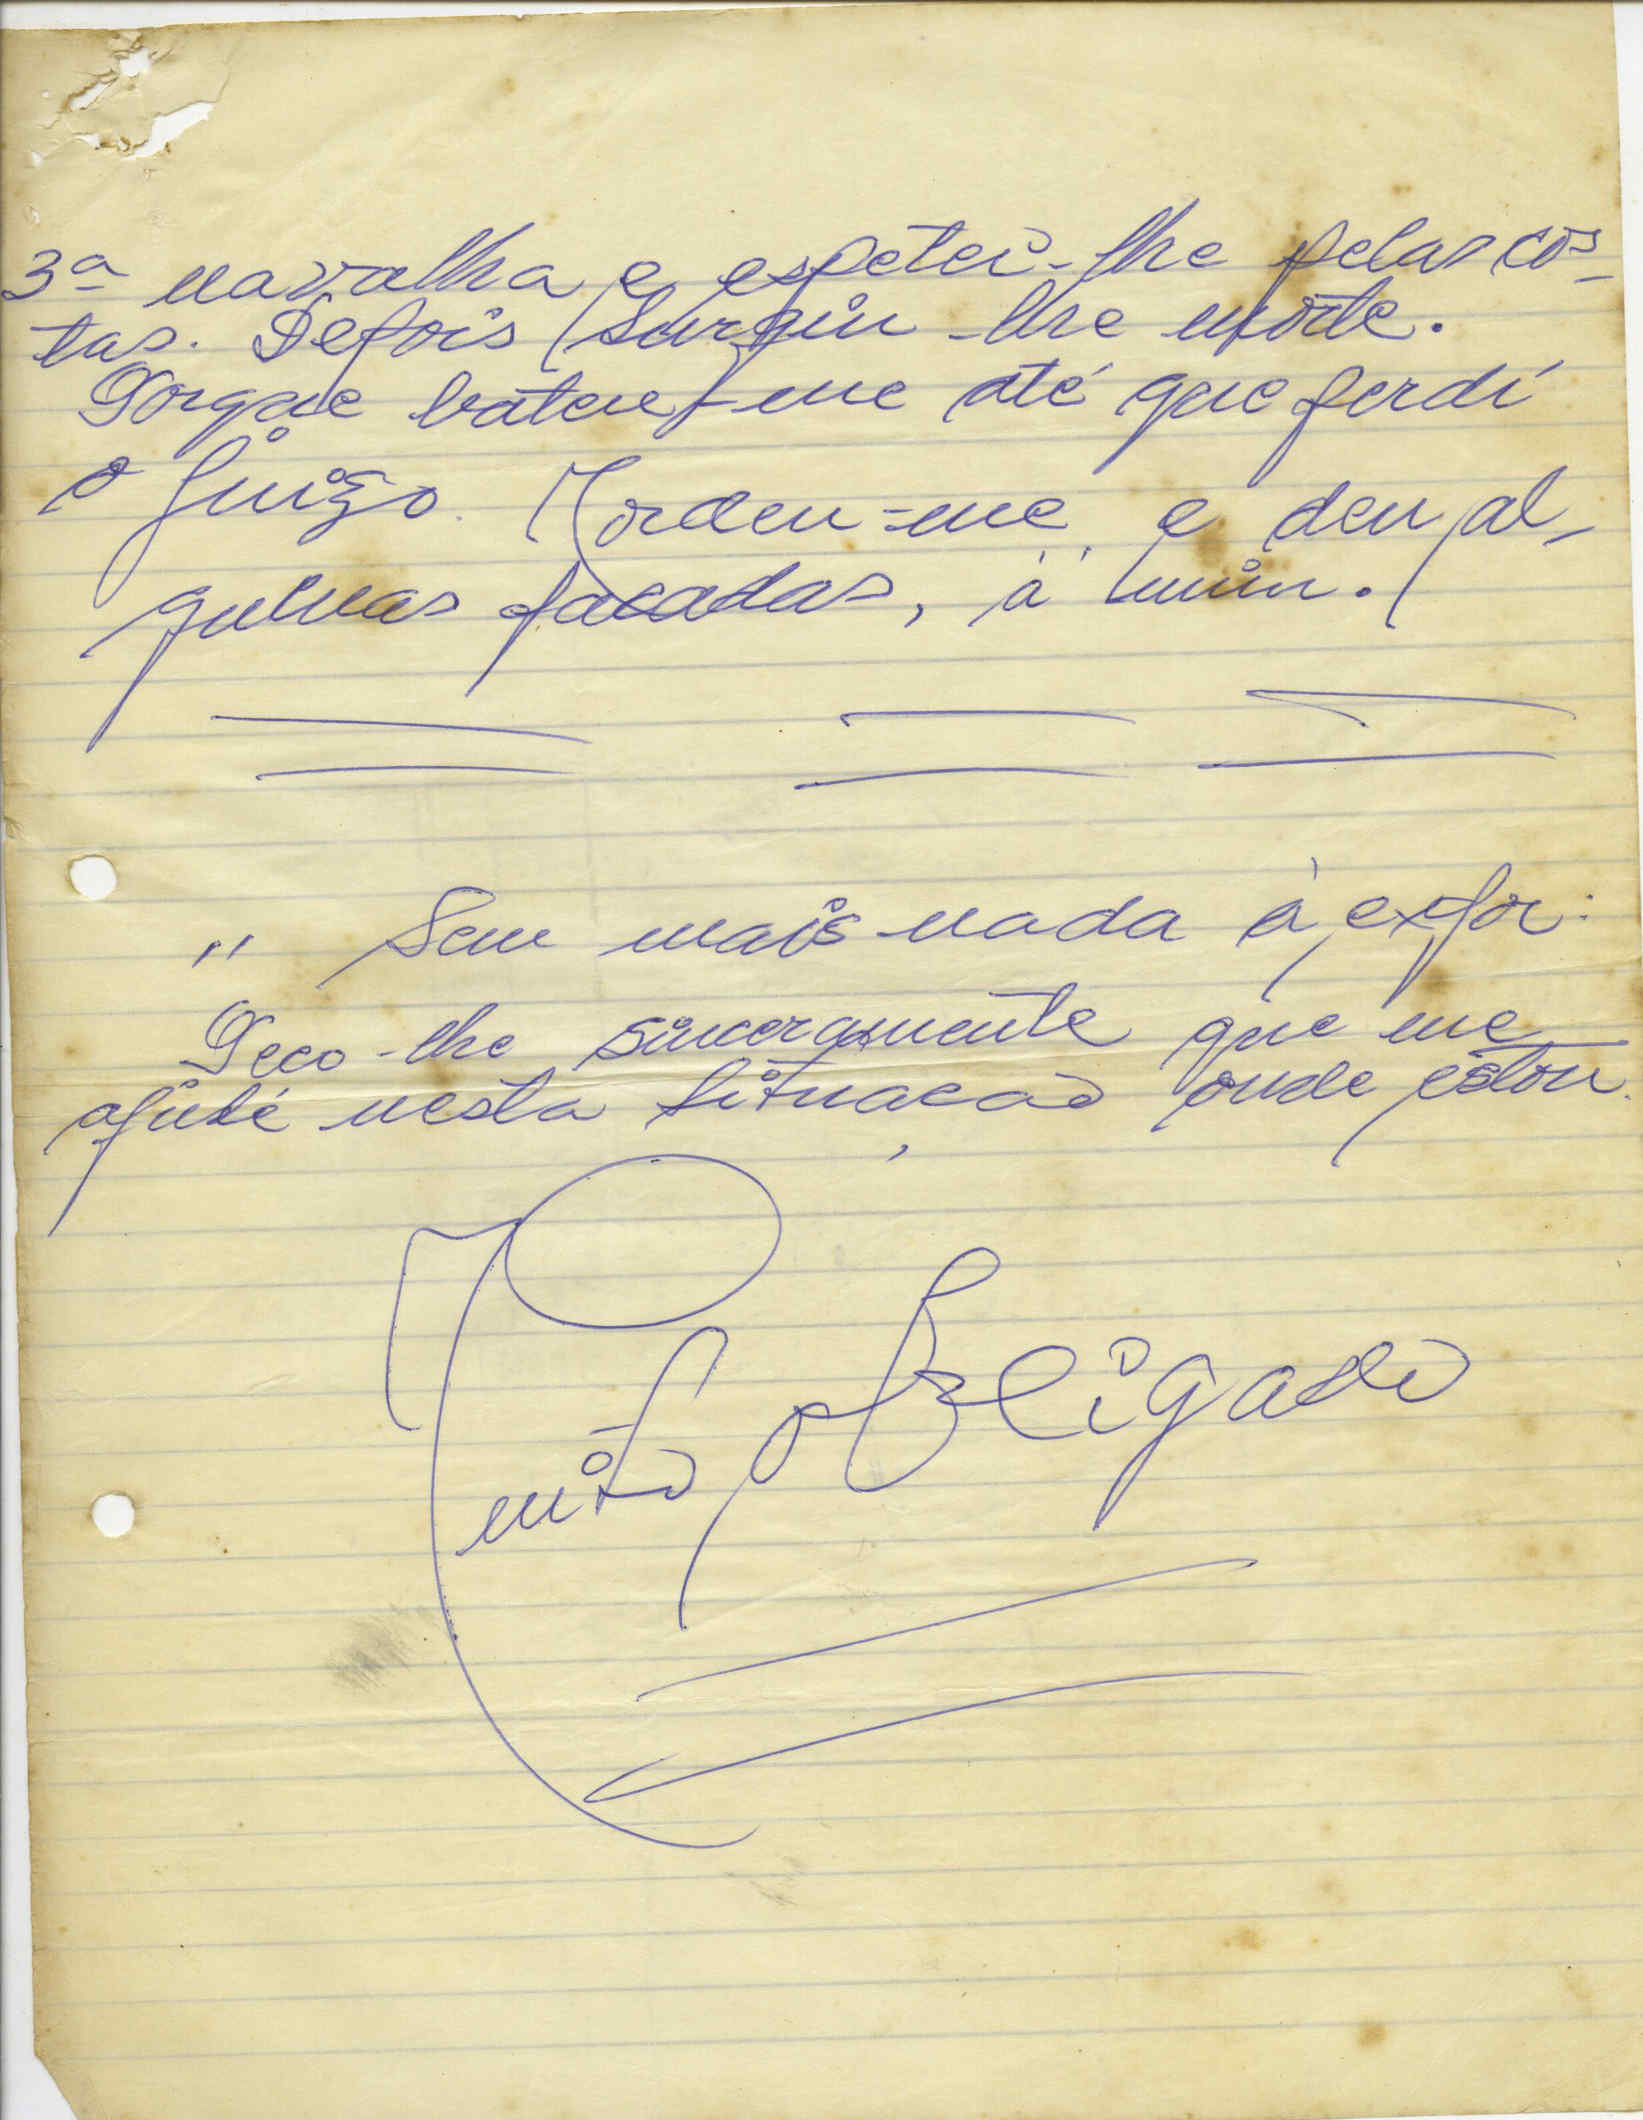 3ª navalha e espetei-lhe pelas cos-
tas. Depois surgiu-lhe morte.
Porque bateu-me até que perdí
o juizo. Mordeu-me e deu al-
gumas facadas, à mim.
" Sem mais nada à expor:
Peco-lhe sinceramente que me
ajude nesta situação onde estou.
Muito obrigado